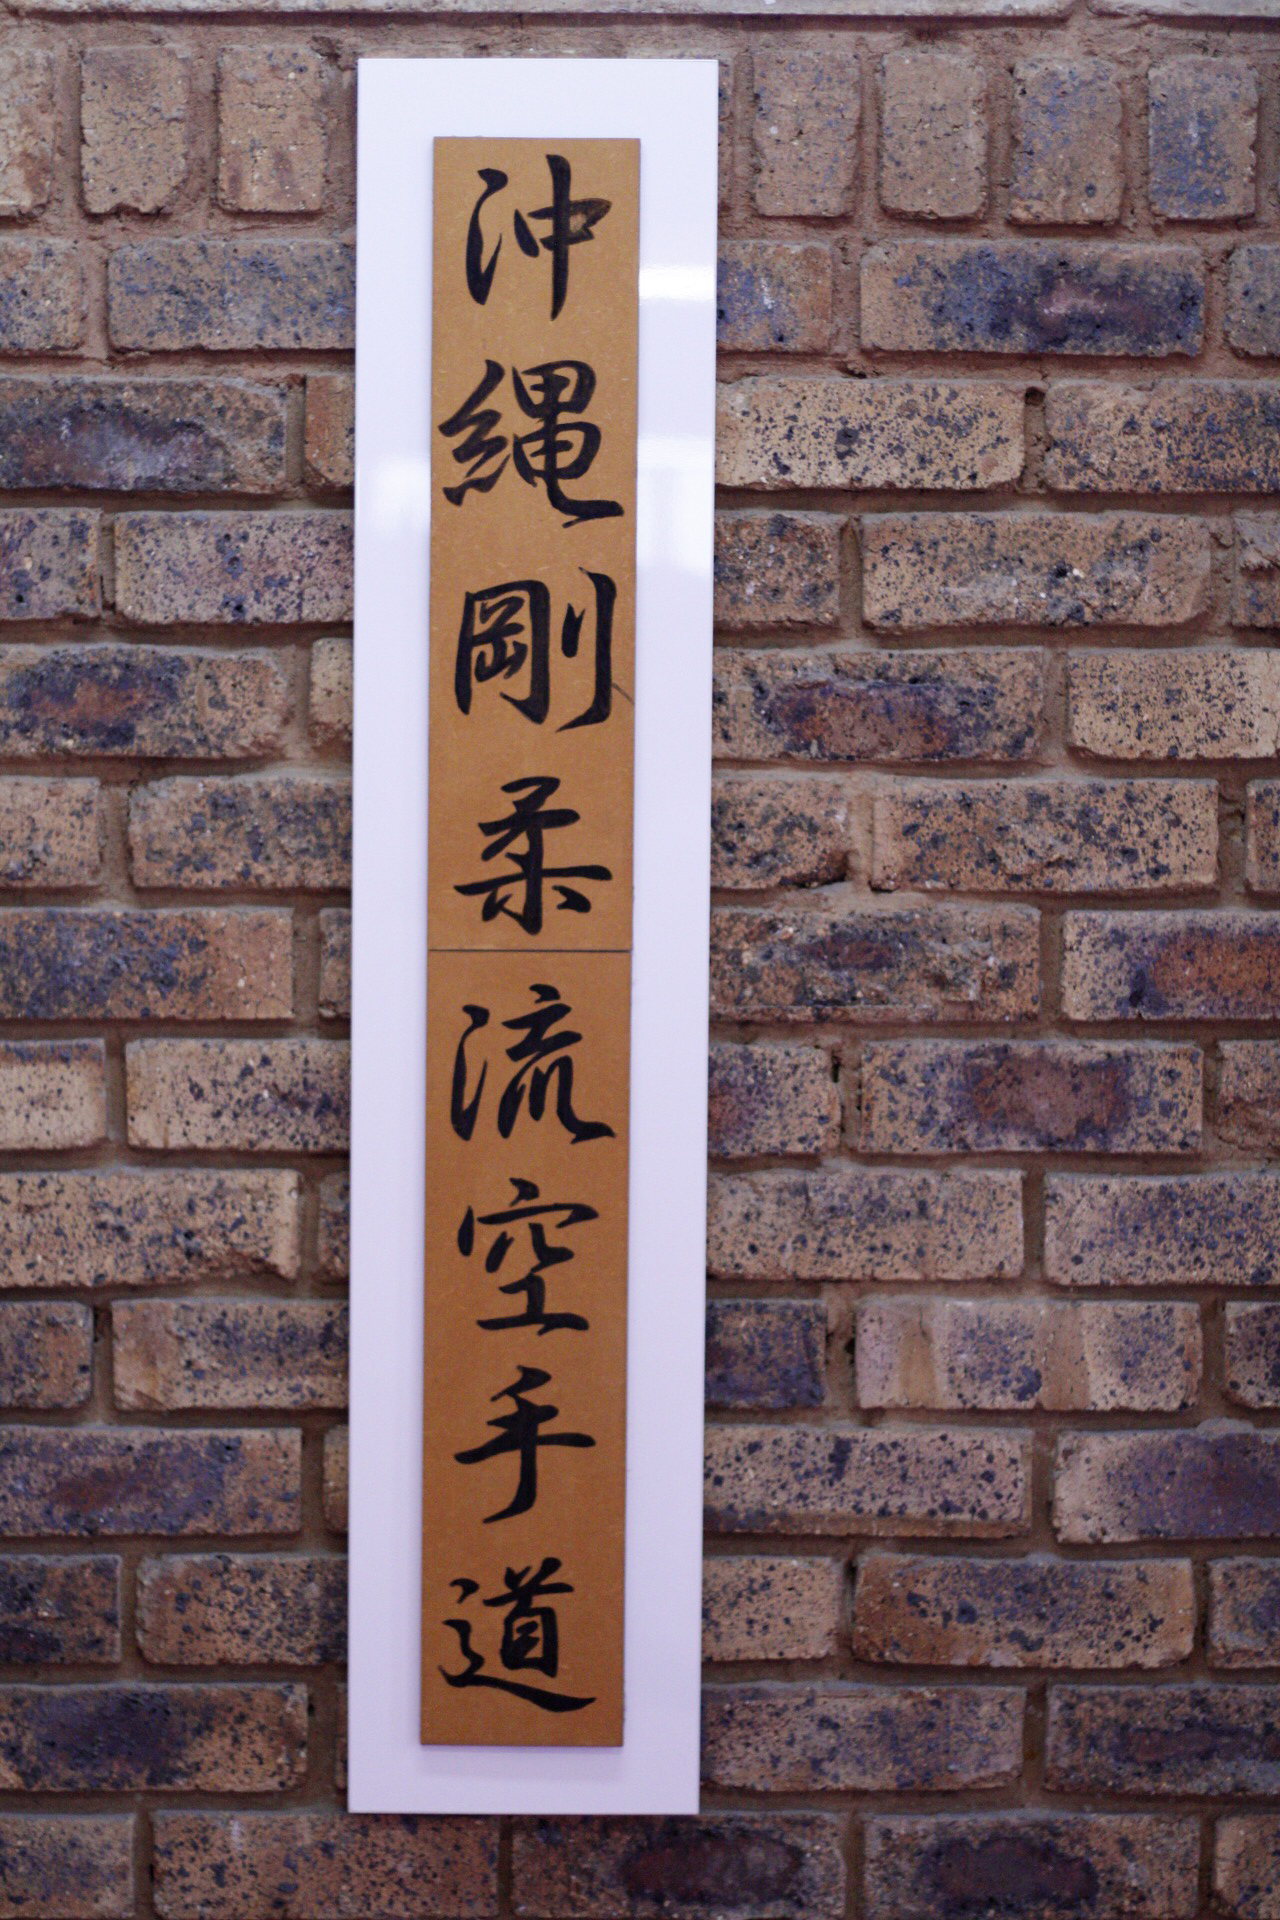 沖縄剛柔流空手道